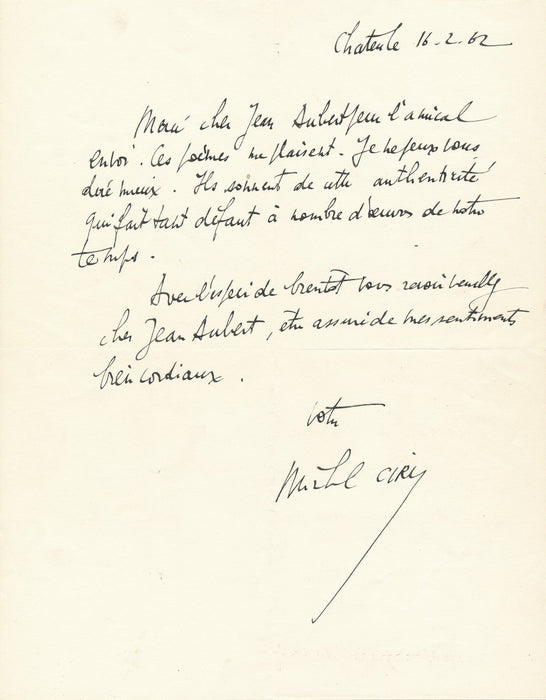 16-2-62
Merci cher Jean Aubert pour l'amical
envoi. Ces poèmes me plaisent. Je ne peux vous
dire mieux. Ils sonnent de cette authenticité
qui fait tant défaut à nombre d'œuvres de notre
temps.
Avec l'espoir de bientôt vous revoir veuillez
cher Jean Aubert, être assuré de mes sentiments
bien cordiaux.
votre
Michel CIRY